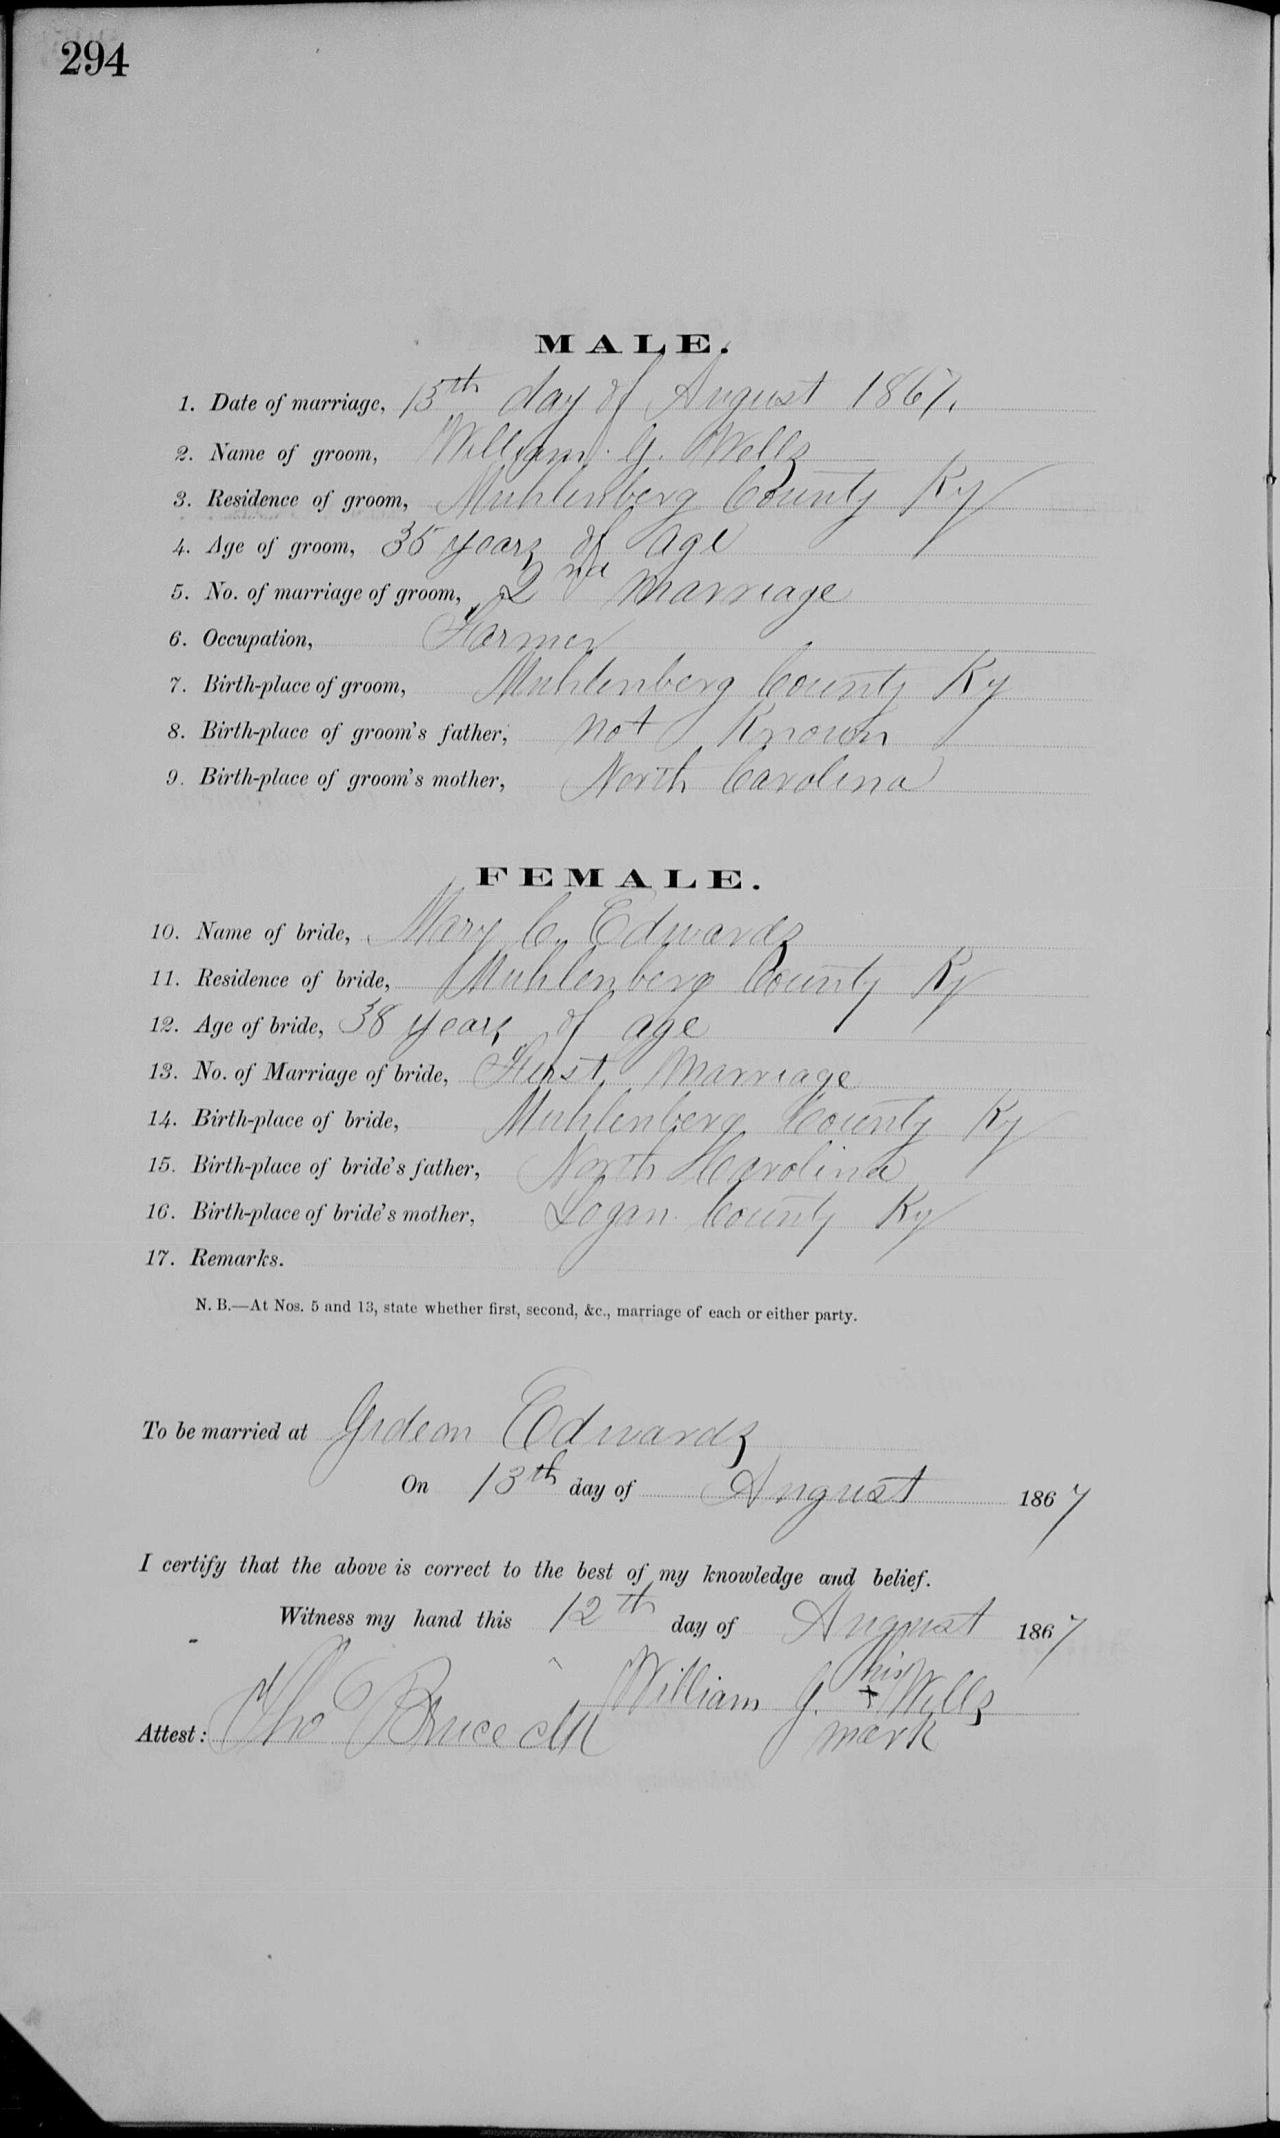 294
MALE.
1. Date of marriage, 13th day of August 1867.
2. Name of groom, William G. Wells
3. Residence of groom, Muhlenberg County Ky
4. Age of groom, 35 years of age
5. No. of marriage of groom, 2nd marriage
6. Occupation, Farmer
7. Birth-place of groom, Muhlenberg County Ky
8. Birth-place of groom's father, not Known
9. Birth-place of groom's mother, North Carolina
FEMALE.
10. Name of bride, Mary C. Edwards
11. Residence of bride, Muhlenberg County Ky
12. Age of bride, 38 years of age
13. No. of Marriage of bride, First Marriage
14. Birth-place of bride, Muhlenberg County Ky
15. Birth-place of bride's father, North Carolina
16. Birth-place of bride's mother, Logan County Ky
17. Remarks.
N. B.—At Nos. 5 and 13, state whether first, second, &c., marriage of each or either party.
To be married at Gideon Edwards
On 13th day of August 1867
I certify that the above is correct to the best of my knowledge and belief.
Witness my hand this 12th day of August 1867
his
William G. + Wells
Attest: Tho Bruce clk
mark